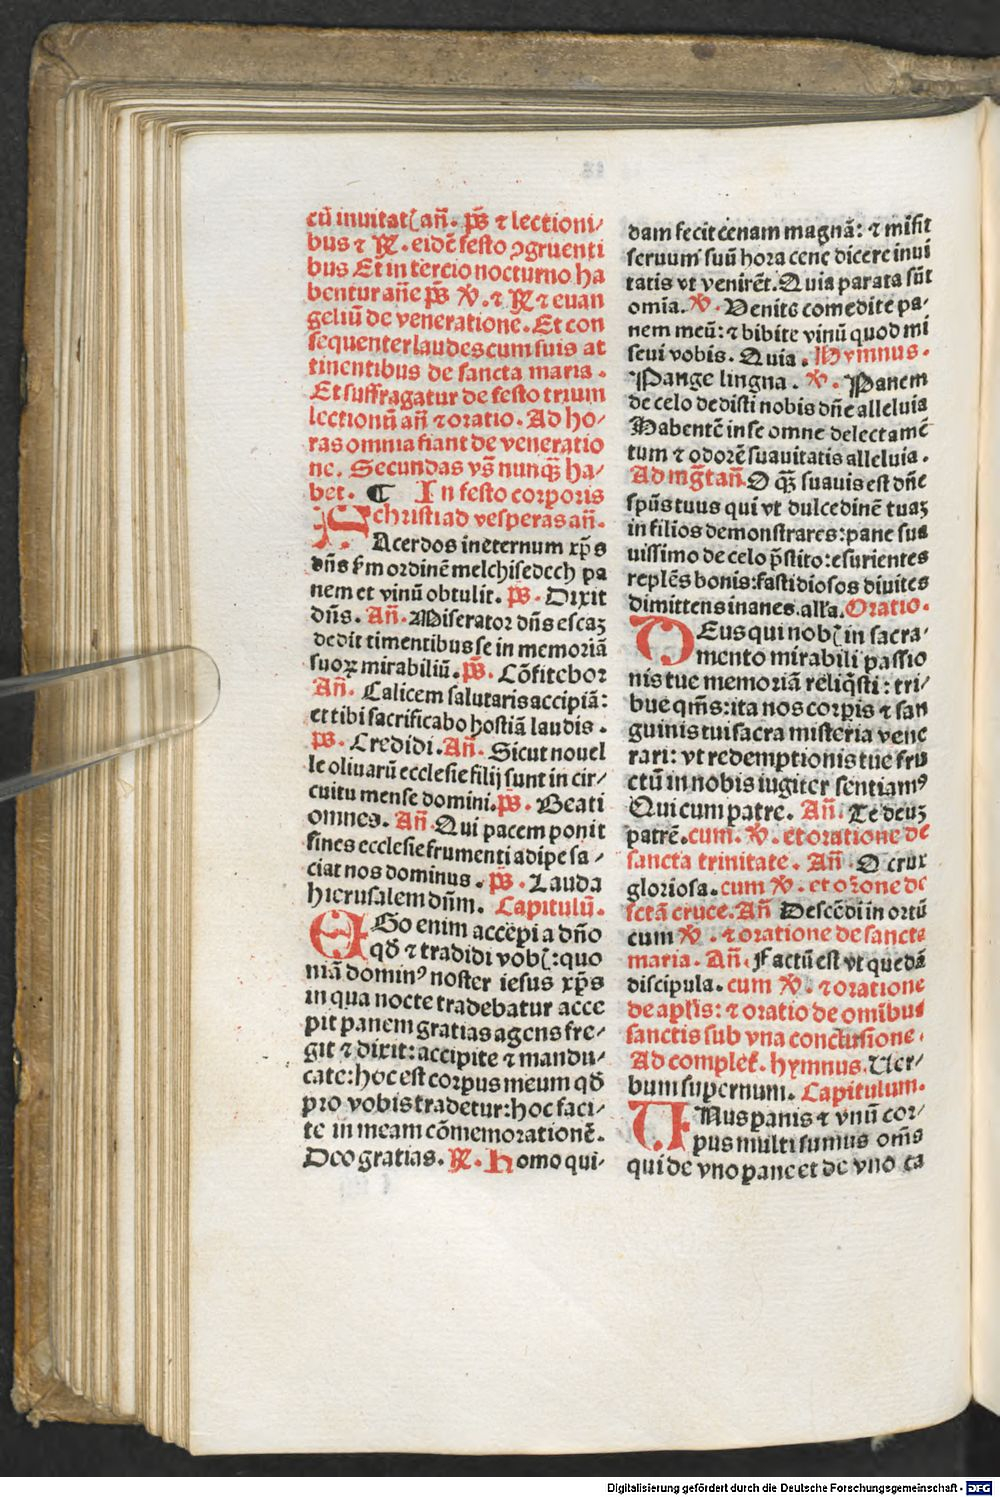 cū inuitatꝭ an̄. p̄s ⁊ lectioni/
bus ⁊ ℟. eidē festo ꝯgruenti
bus Et in tercio nocturno ha
bentur an̄e p̄s ℣. ⁊ ℟ ⁊ euan
geliū de veneratione. Et con
sequenter laudes cum suis at
tinentibus de sancta maria.
Et suffragatur de festo trium
lectionū an̄ ⁊ oratio. Ad ho/
ras omnia fiant de veneratio
ne. Secundas vs̄ nunq̄ȝ ha/
bet. ¶ In festo corporis
christi ad vesperas an̄.
SAcerdos in eternum xp̄s
dn̄s ẜm ordinē melchisedech pa
nem et vinū obtulit. p̄s. Dixit
dn̄s. An̄. Miserator dn̄s escaȝ
dedit timentibus se in memoriā
suoꝝ mirabiliū. p̄s. Cōfitebor
An̄. Calicem salutaris accipiā:
et tibi sacrificabo hostiā laudis.
p̄s. Credidi. An̄. Sicut nouel
le oliuarū ecclesie filij sunt in cir/
cuitu mense domini. p̄s. Beati
omnes. An̄. Qui pacem ponit
fines ecclesie frumenti adipe sa/
ciat nos dominus. p̄s. Lauda
hierusalem dn̄m. Capitulū.
EGo enim accepi a dn̄o
qđ ⁊ tradidi vobꝭ: quo
niā dominꝰ noster iesus xp̄s
in qua nocte tradebatur acce
pit panem gratias agens fre/
git ⁊ dixit: accipite ⁊ mandu/
cate: hoc est corpus meum qđ
pro vobis tradetur: hoc faci/
te in meam cōmemorationē.
Deo gratias. ℟. Homo qui/
dam fecit cenam magnā: ⁊ misit
seruum suū hora cene dicere inui
tatis vt venirēt. Quia parata sūt
omīa. ℣. Venite comedite pa/
nem meū: ⁊ bibite vinū quod mi
scui vobis. Quia. Hymnus.
Pange lingna. ℣. Panem
de celo dedisti nobis dn̄e alleluia
Habentē in se omne delectamē
tum ⁊ odorē suauitatis alleluia.
Ad mḡt an̄. O q̄ȝ suauis est dn̄e
spūs tuus qui vt dulcedinē tuaȝ
in filios demonstrares: pane sua
uissimo de celo p̄stito: esurientes
replēs bonis: fastidiosos diuites
dimittens inanes. alľa. Oratio.
DEus qui nobꝭ in sacra/
mento mirabili passio
nis tue memoriā reliq̄sti: tri/
bue qm̄s: ita nos corp̄is ⁊ san
guinis tui sacra misteria vene
rari: vt redemptionis tue fru
ctū in nobis iugiter sentiamꝰ
Qui cum patre. An̄. Te deuȝ
patrē. cum. ℣. et oratione de
sancta trinitate. An̄. O crux
gloriosa. cum ℣. et or̄one de
sctā cruce. An̄ Descēdi in ortū
cum ℣. ⁊ oratione de sancta
maria. An̄. Factū est vt quedā
discipula. cum ℣. ⁊ oratione
de apl̄is: ⁊ oratio de omībus
sanctis sub vna conclusione.
Ad complet. hymnus. Uer/
bum supernum. Capitulum.
UNus panis ⁊ vnū cor/
pus multi sumus om̄s
qui de vno pane et de vno ca
Digitalisierung gefördert durch die Deutsche Forschungsgemeinschaft - DFG